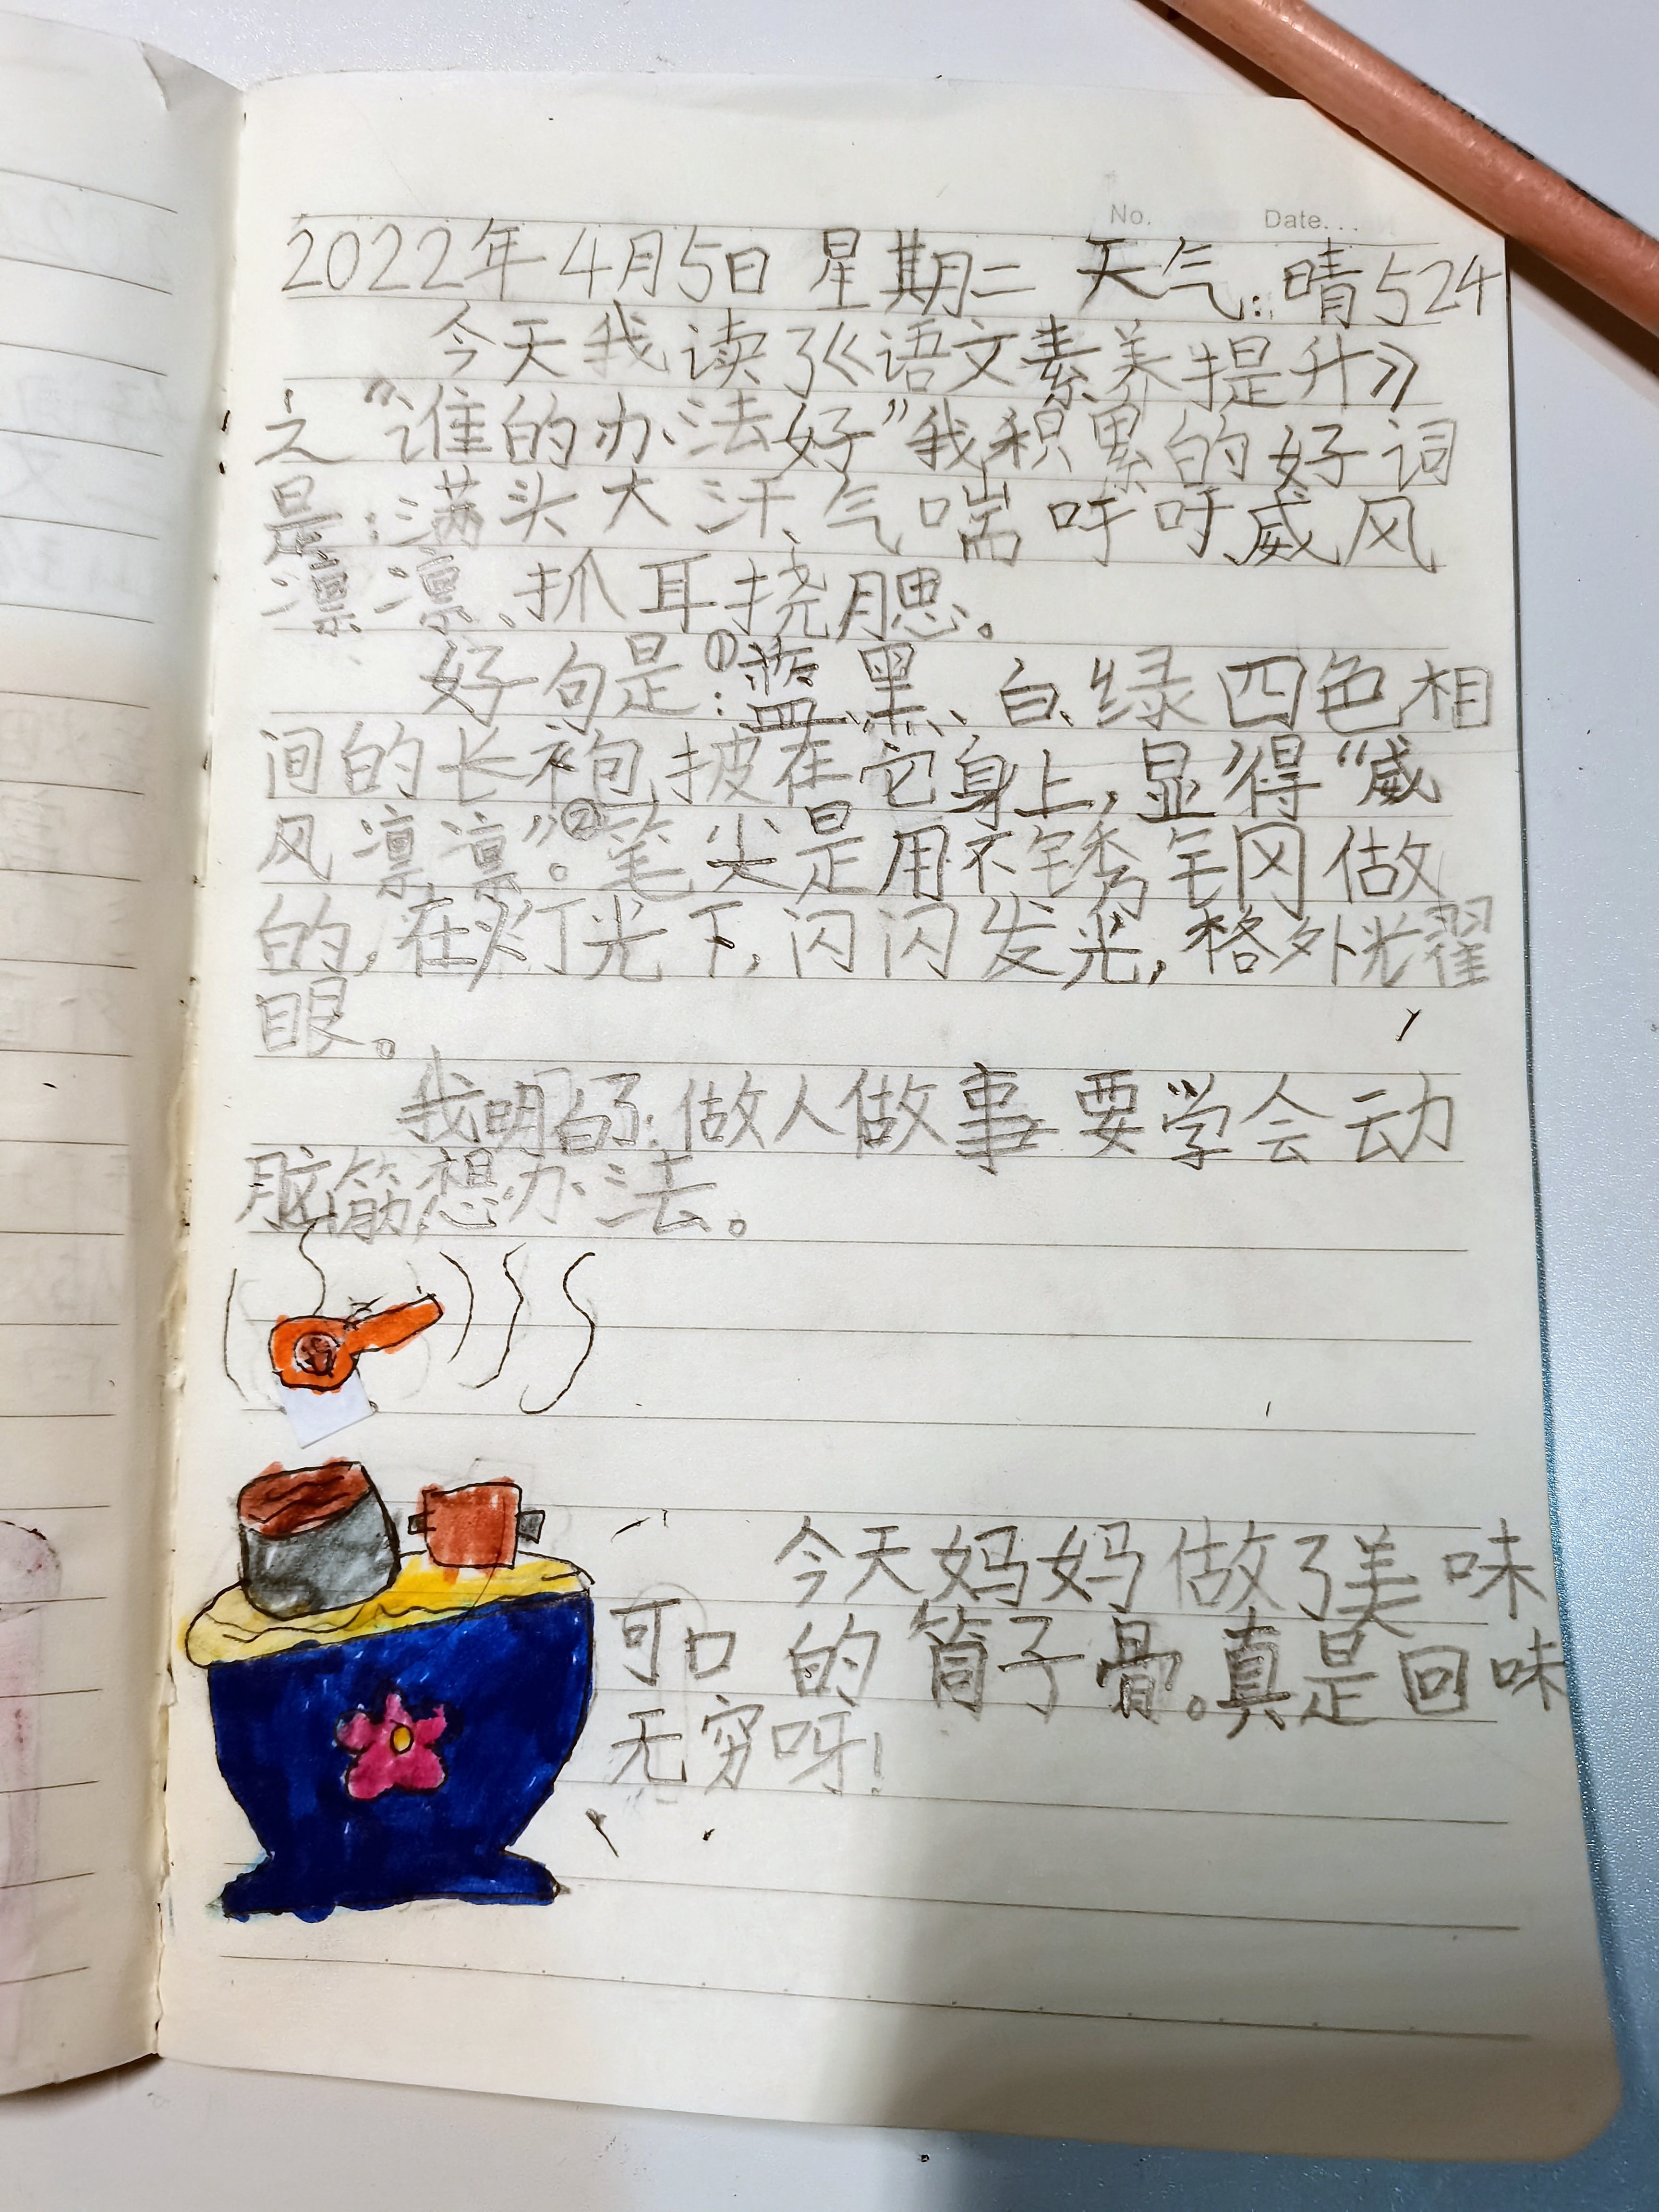 No.
Date...
2022年4月5日 星期二 天气:晴524
今天我读了《语文素养提升》
之“谁的办法好”我积累的好词
是:满头大汗、气喘吁吁、威风
凛凛、抓耳挠腮。
好句是:①蓝、黑、白、绿四色相
间的长袍披在它身上,显得“威
风凛凛”。②笔尖是用不锈钢做
的,在灯光下,闪闪发光,格外耀
眼。
我明白了:做人做事要学会动
脑筋想办法。
今天妈妈做了美味
可口的筒子骨。真是回味
无穷呀!